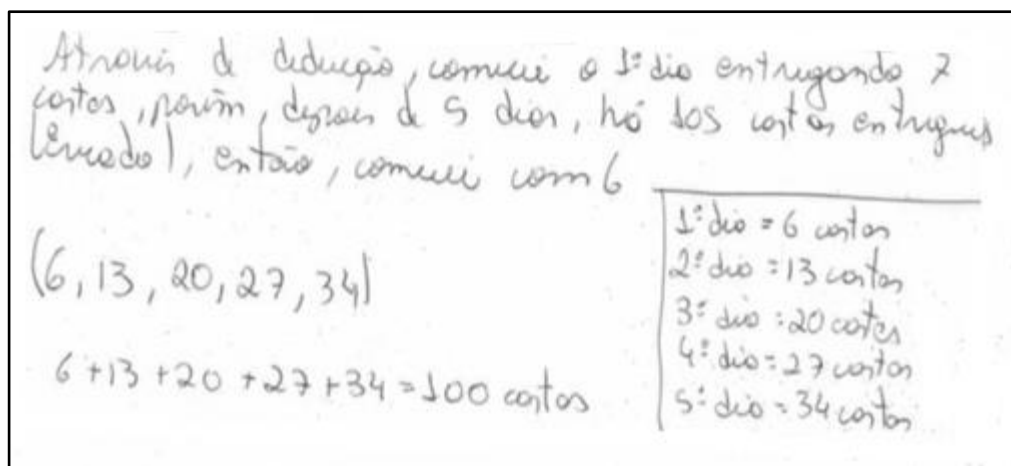 Através de dedução, comecei o 1º dia entregando 7
cartas, porém, depois de 5 dias, há 105 cartas entregues
(errado), então, comecei com 6
(6, 13, 20, 27, 34)
6 + 13 + 20 + 27 + 34 = 100 cartas
1º dia = 6 cartas
2º dia = 13 cartas
3º dia = 20 cartas
4º dia = 27 cartas
5º dia = 34 cartas